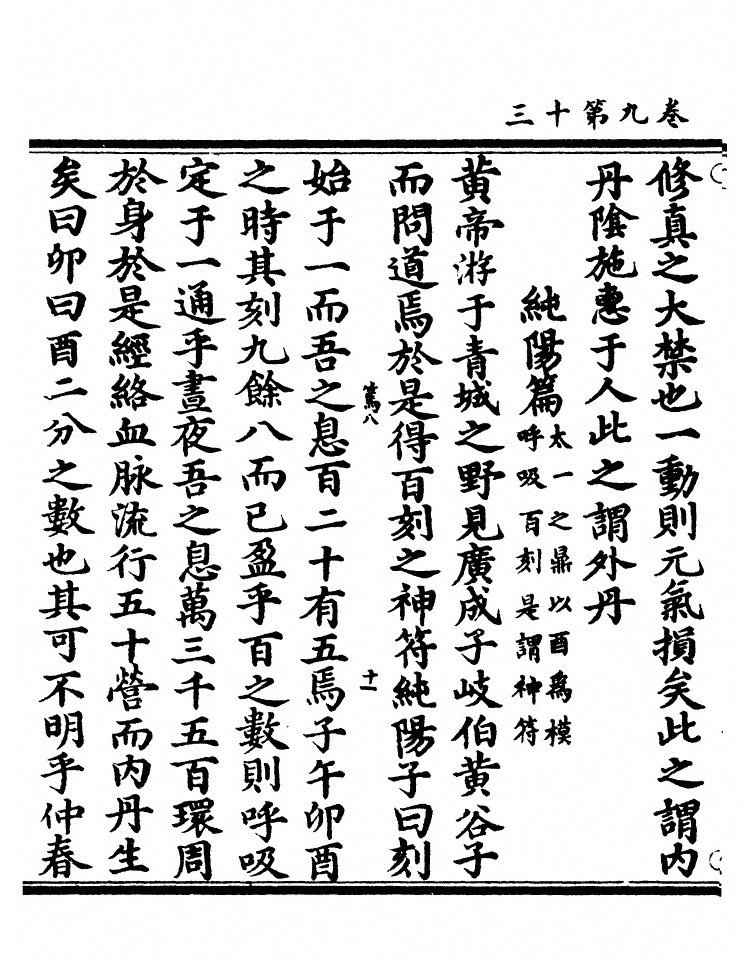 卷九第十三
修真之大禁也一動則元氣損矣此之謂内
丹陰施惠于人此之謂外丹
純陽篇
太一之鼎以酉爲模
呼吸百刻是謂神符
黄帝游于青城之野見廣成子岐伯黄谷子
而問道焉於是得百刻之神符純陽子曰刻
篤八 十一
始于一而吾之息百二十有五焉子午卯酉
之時其刻九餘八而已盈乎百之數則呼吸
定于一通乎晝夜吾之息萬三千五百環周
於身於是經絡血脉流行五十營而内丹生
矣曰卯曰酉二分之數也其可不明乎仲春